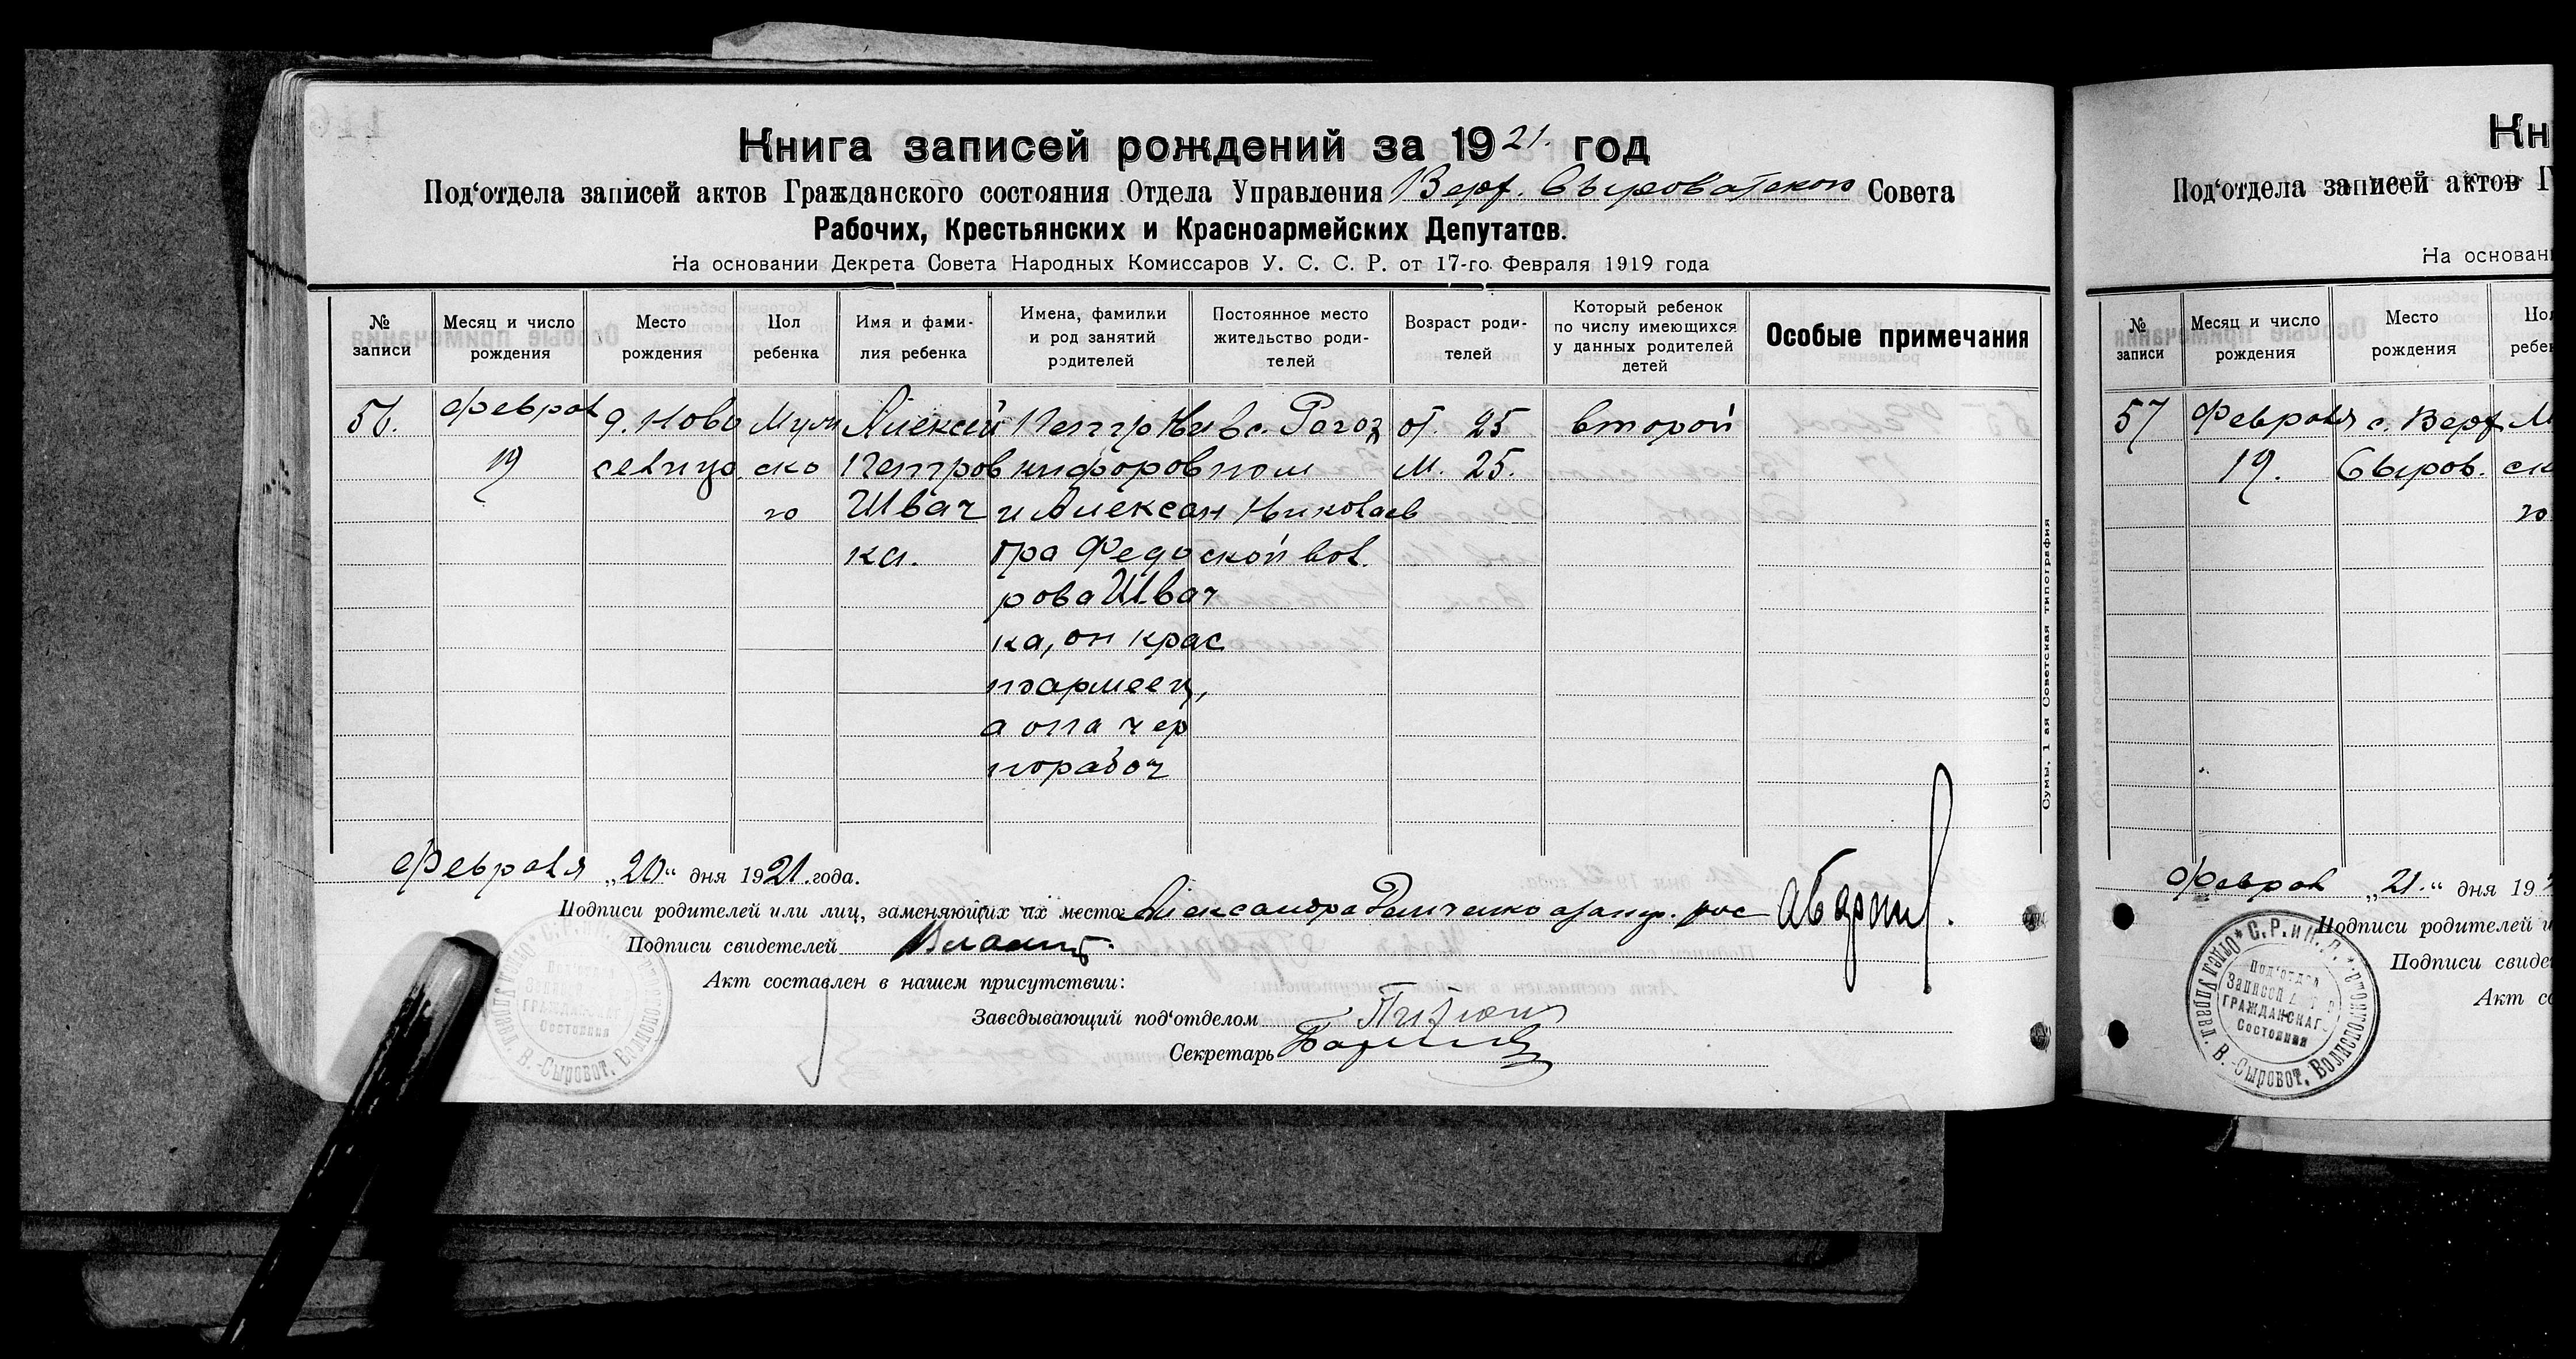 Книга записей рождений за 1921. год
Под'отдела записей актов Гражданского состояния Отдела Управления Верх. Сыроватского Совета
Рабочих, Крестьянских и Красноармейских Депутатов.
На основании Декрета Совета Народных Комиссаров У. С. С. Р. от 17-го Февраля 1919 года
№ записи
Месяц и число рождения
Место рождения
Пол ребенка
Имя и фами-
лия ребенка
Имена, фамилии
и род занятий
родителей
Постоянное место
жительство роди-
телей
Возраст роди-
телей
Который ребенок
по числу имеющихся
у данных родителей
детей
Особые примечания
56.
Феврал
19
д. Ново
селица.
Муж
ско
го
Алексей
Петров
Швач
ка.
Петр Ни
кифоров
и Алексан
дра Федо
рова Швач
ка, он крас
ноармеец,
а она чер
норабоч
вс. Рогоз
ном
Николаев
ской вол.
от. 25
м. 25.
второй
Февраля „20“ дня 1921 года.
Подписи родителей или лиц, заменяющих их место Александра
Подписи свидетелей
Акт составлен в нашем присутствии:
Заведывающий под'отделом
Секретарь
Сумы, 1 ая Советская типография
Отдел Управл. В.-Сыроват. Волисполкома. С. Р. и К. Д.
Под'отдел
Записей
ГРАЖДАНСКАГО
Состояния
Кн
Под'отдела записей актов Г
На основан
№ записи
Месяц и число рождения
Место рождения
Пол
ребен
57
Февраля
19.
с. Верх
Сыров.
М
ск
го
Феврал „21.“ дня 19
Подписи родителей и
Подписи свиде
Акт со
Отдел Управл. В.-Сыроват. Волисполкома. С. Р. и К. Д.
Под'отдел
Записей
ГРАЖДАНСКАГО
Состояния